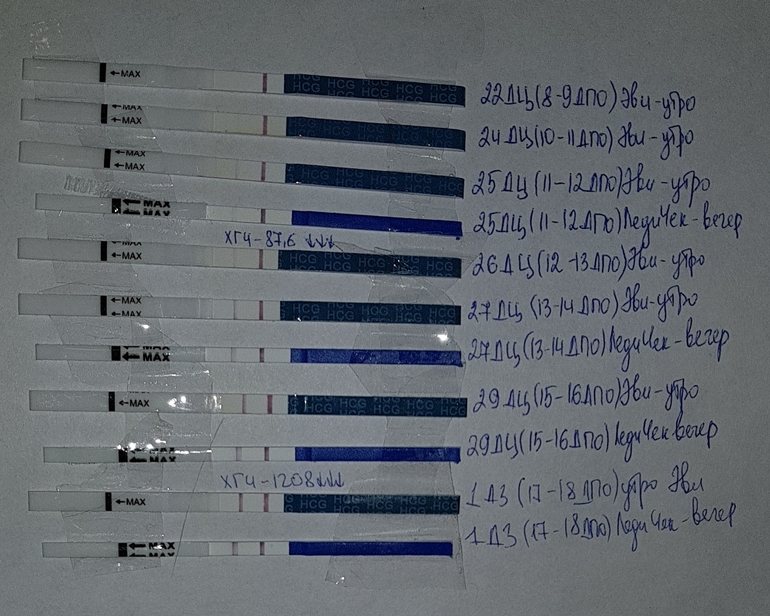 ←MAX HCG HCG HCG HCG HCG HCG HCG HCG 22ДЦ(8-9ДПО)Эви-утро
←MAX ←MAX HCG HCG HCG HCG 24ДЦ(10-11ДПО) Эви-утро
←MAX ←MAX HCG HCG HCG HCG 25ДЦ(11-12ДПО)Эви-утро
←MAX ←MAX 25ДЦ(11-12ДПО)ЛедиЧек-вечер
ХГЧ-87,6 ↓↓↓
←MAX ←MAX HCG HCG HCG HCG 26ДЦ(12-13ДПО)Эви-утро
←MAX ←MAX HCG HCG HCG HCG 27ДЦ(13-14ДПО)Эви-утро
←MAX ←MAX 27ДЦ(13-14ДПО)ЛедиЧек-вечер
←MAX HCG HCG HCG HCG 29ДЦ(15-16ДПО)Эви-утро
←MAX ←MAX 29ДЦ(15-16ДПО)ЛедиЧек-вечер
ХГЧ-1208↓↓↓
←MAX HCG HCG HCG HCG 1ДЗ(17-18ДПО)утро Эви
←MAX ←MAX 1ДЗ(17-18ДПО)ЛедиЧек-вечер